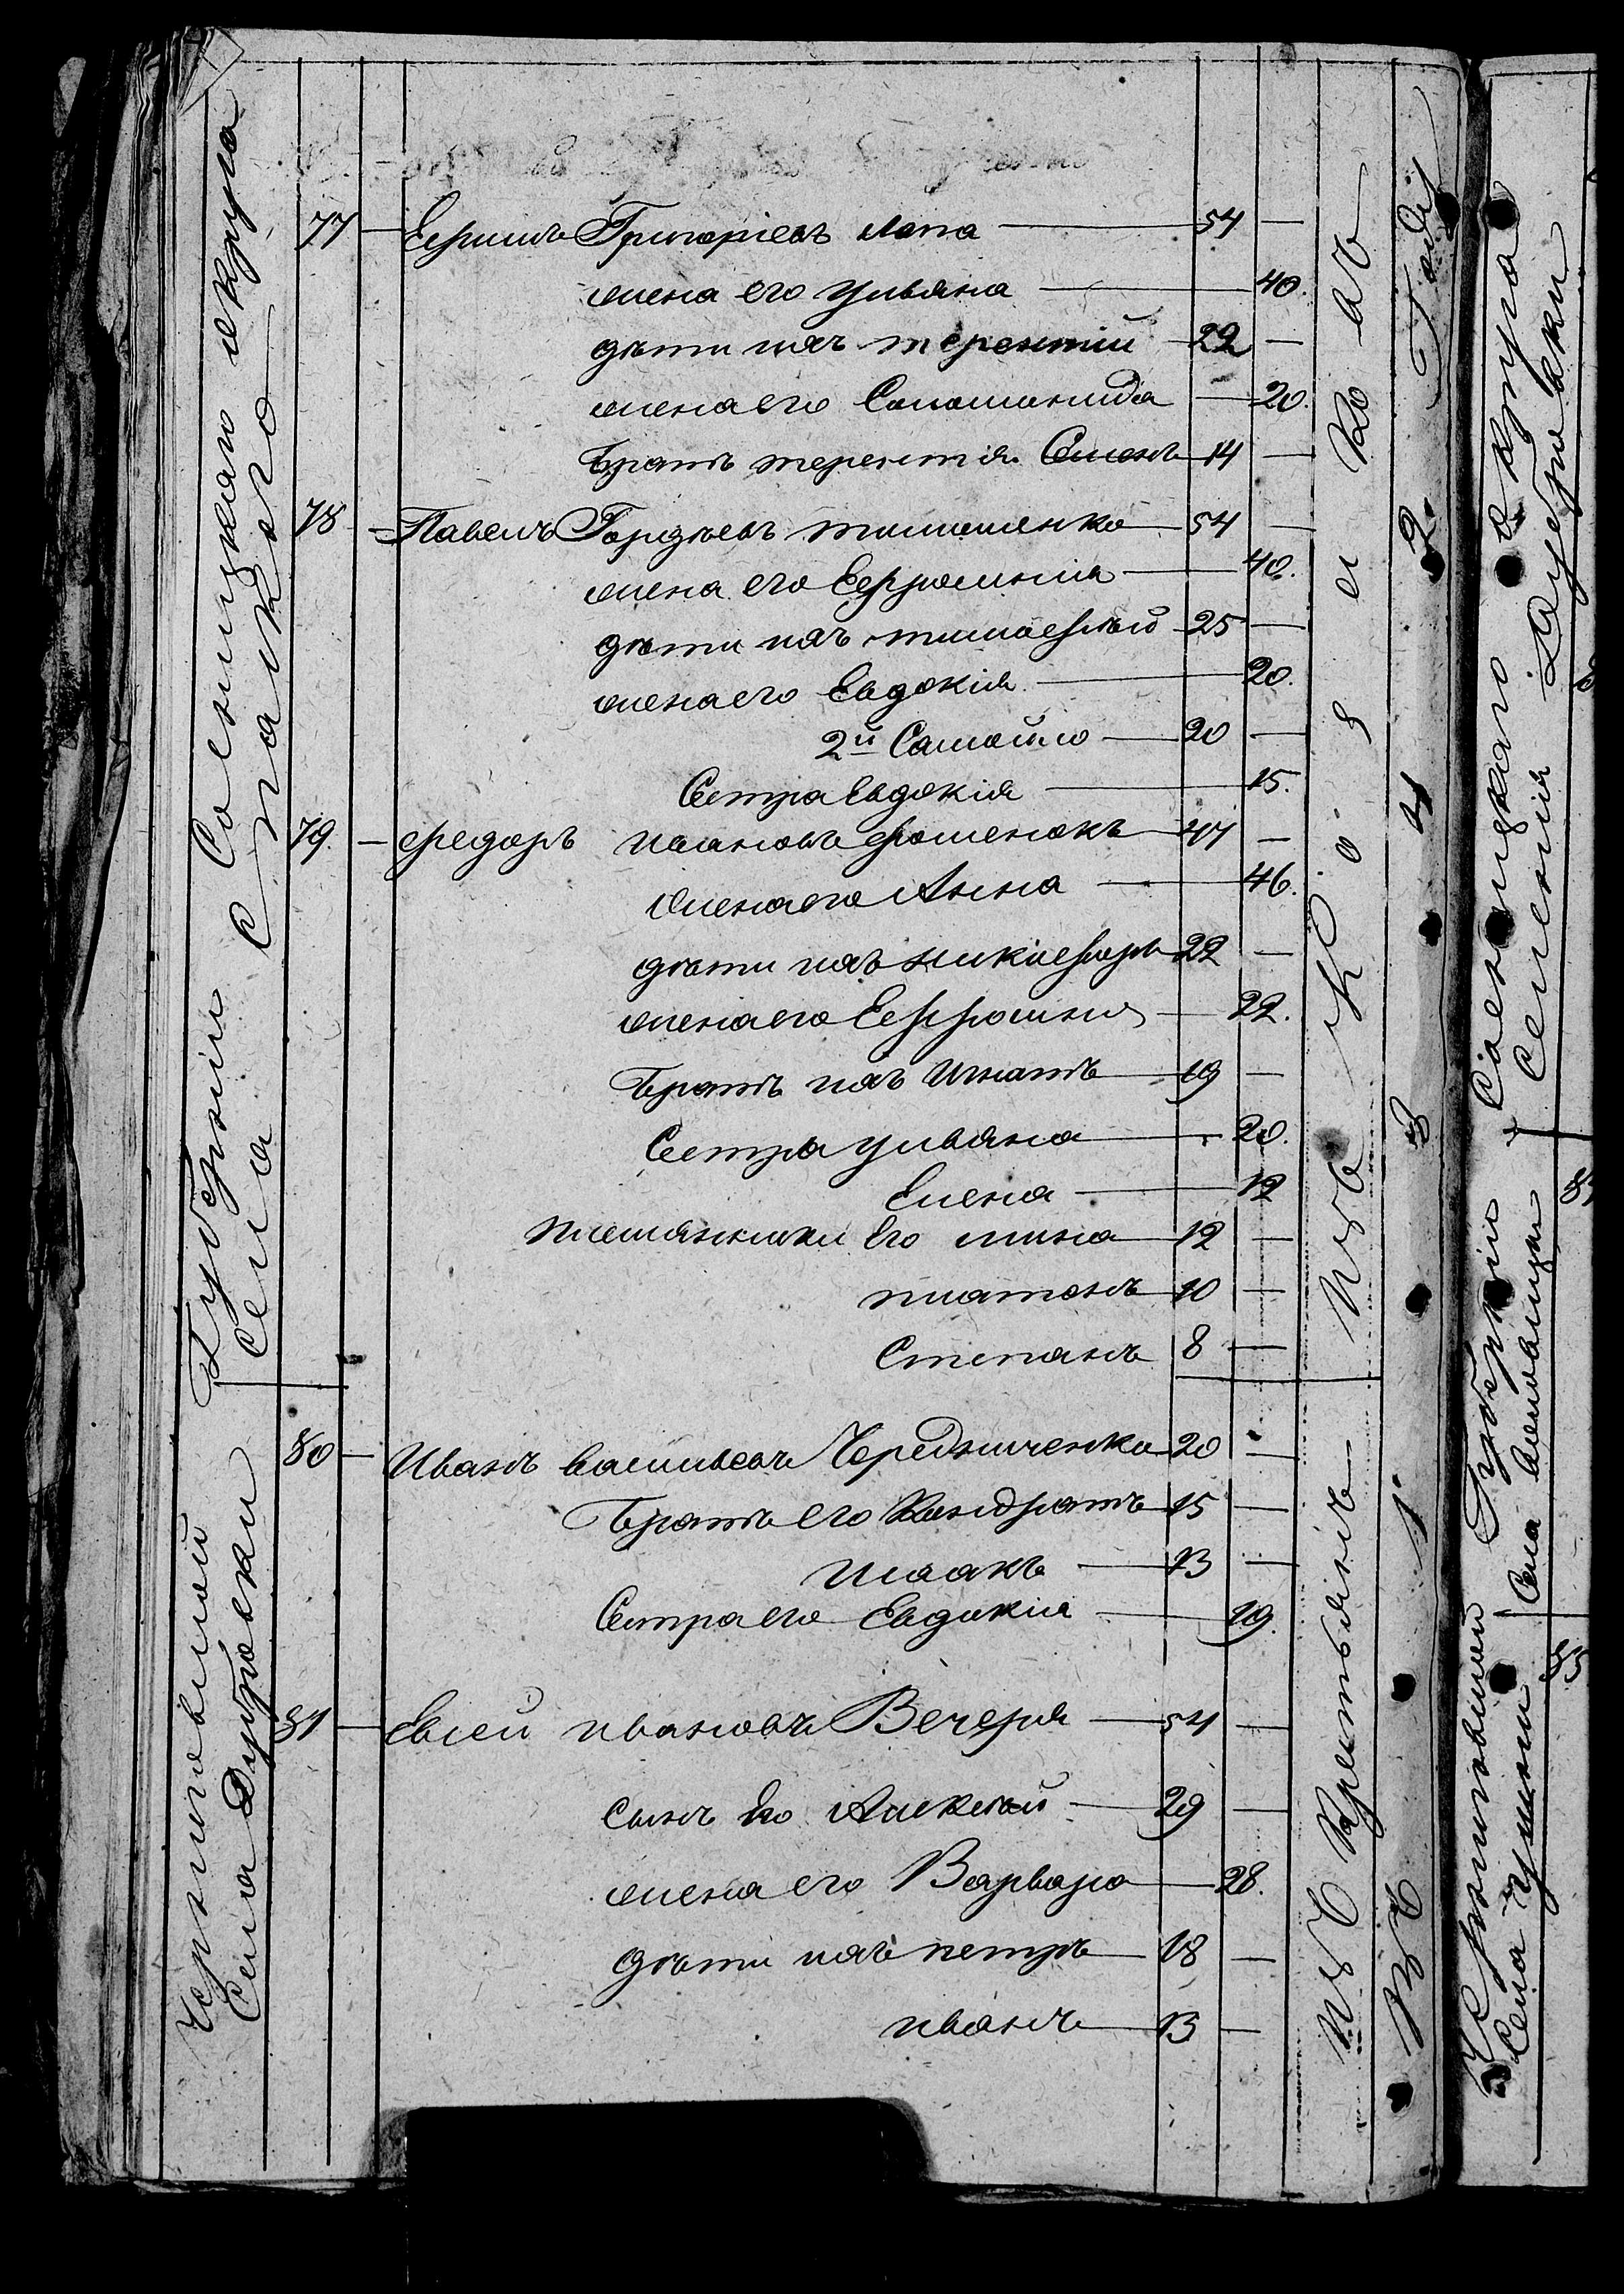 77 — Ефимъ Григоріевъ Лопа — 54 —
жена его Ульяна — 40.
дѣти ихъ Терентій 22 —
жена его Соломонида — 20.
братъ Терентія Семенъ 14 —
78 — Павелъ Гордѣевъ Тимошенко — 54 —
жена его Ефросинія — 40.
дѣти ихъ Тимофѣй 25 —
жена его Евдокія — 20.
2й Самойло — 20 —
Сестра Евдокія — 15.
79. — Федоръ Ивановъ Фоменокъ 47 —
жена его Анна — 46.
дѣти ихъ Никифоръ 22 —
жена его Ефросинія — 22.
братъ ихъ Игнатъ — 19 —
Сестра Ульяна — 20.
Елена — 12
племянники его Мина — 12 —
Платонъ 10 —
Степанъ 8 —
80 — Иванъ Васильевъ Чередниченко 20 —
братъ его Кондратъ 15 —
Исаакъ — 13 —
Сестра его Евдокія — 19.
81 — Евсей Ивановъ Вечеря — 54 —
сынъ его Алексѣй — 29 —
жена его Варвара — 28.
дѣти ихъ Петръ — 18 —
Иванъ — 13 —
Черниговской Губерніи Сосницкаго округа
Села Дубровки
Села Спаского
Изъ Крестьянъ
Изъ Козаковъ
В 1832 Году
Черниговской Губерніи Сосницкаго округа
Села
Села
Селенія